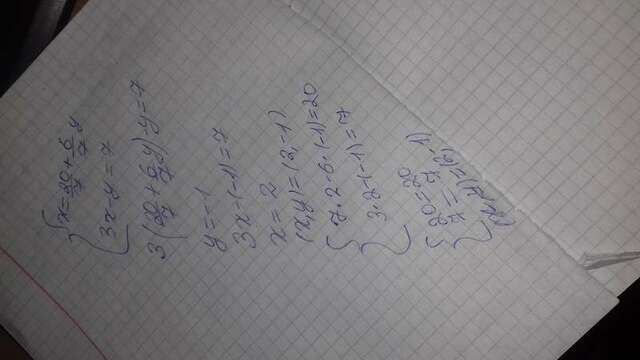 { x = 20/7 + 6/7 y
3x - y = 7
3(20/7 + 6/7 y) - y = 7
y = -1
3x - (-1) = 7
x = 2
(x, y) = (2, -1)
{ 7·2 - 6·(-1) = 20
3·2 - (-1) = 7
{ 20 = 20
7 = 7
(x, y) = (2, -1)